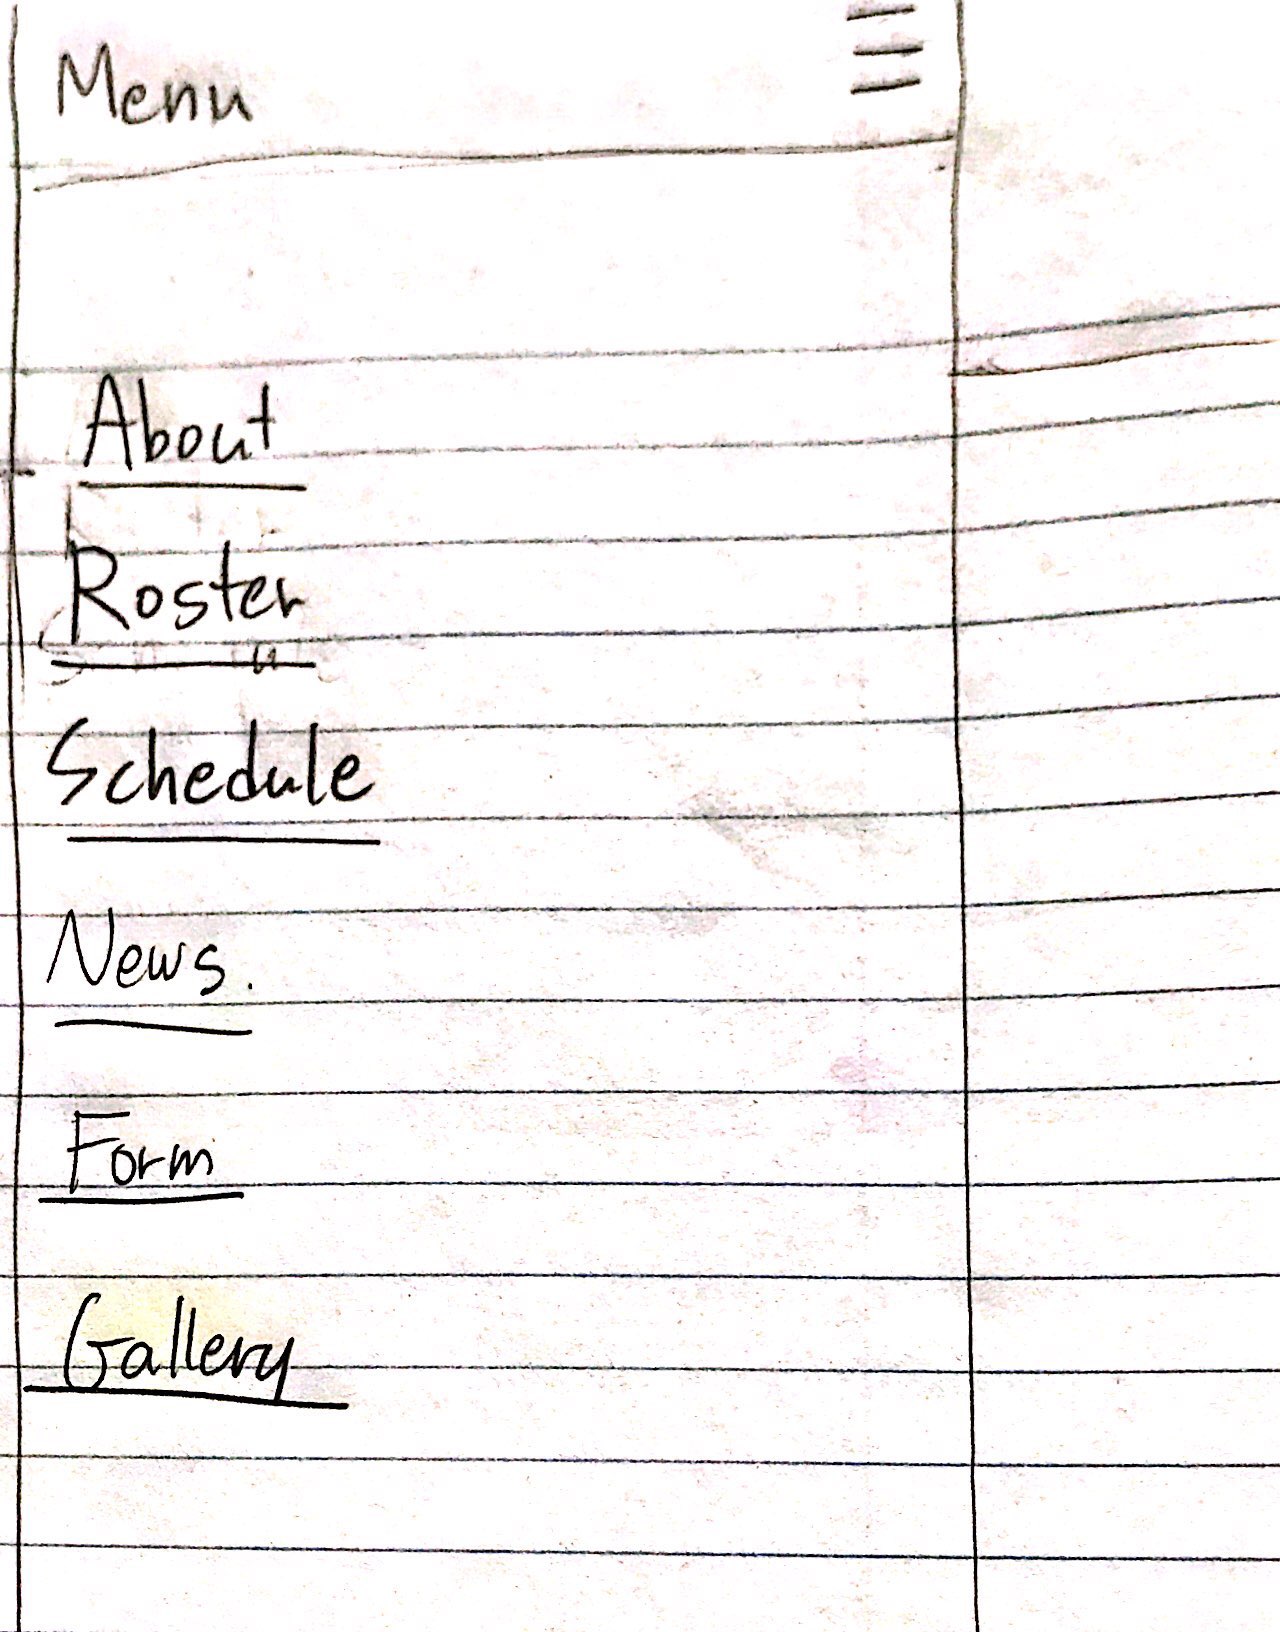 Menu
About
Roster
Schedule
News.
Form
Gallery